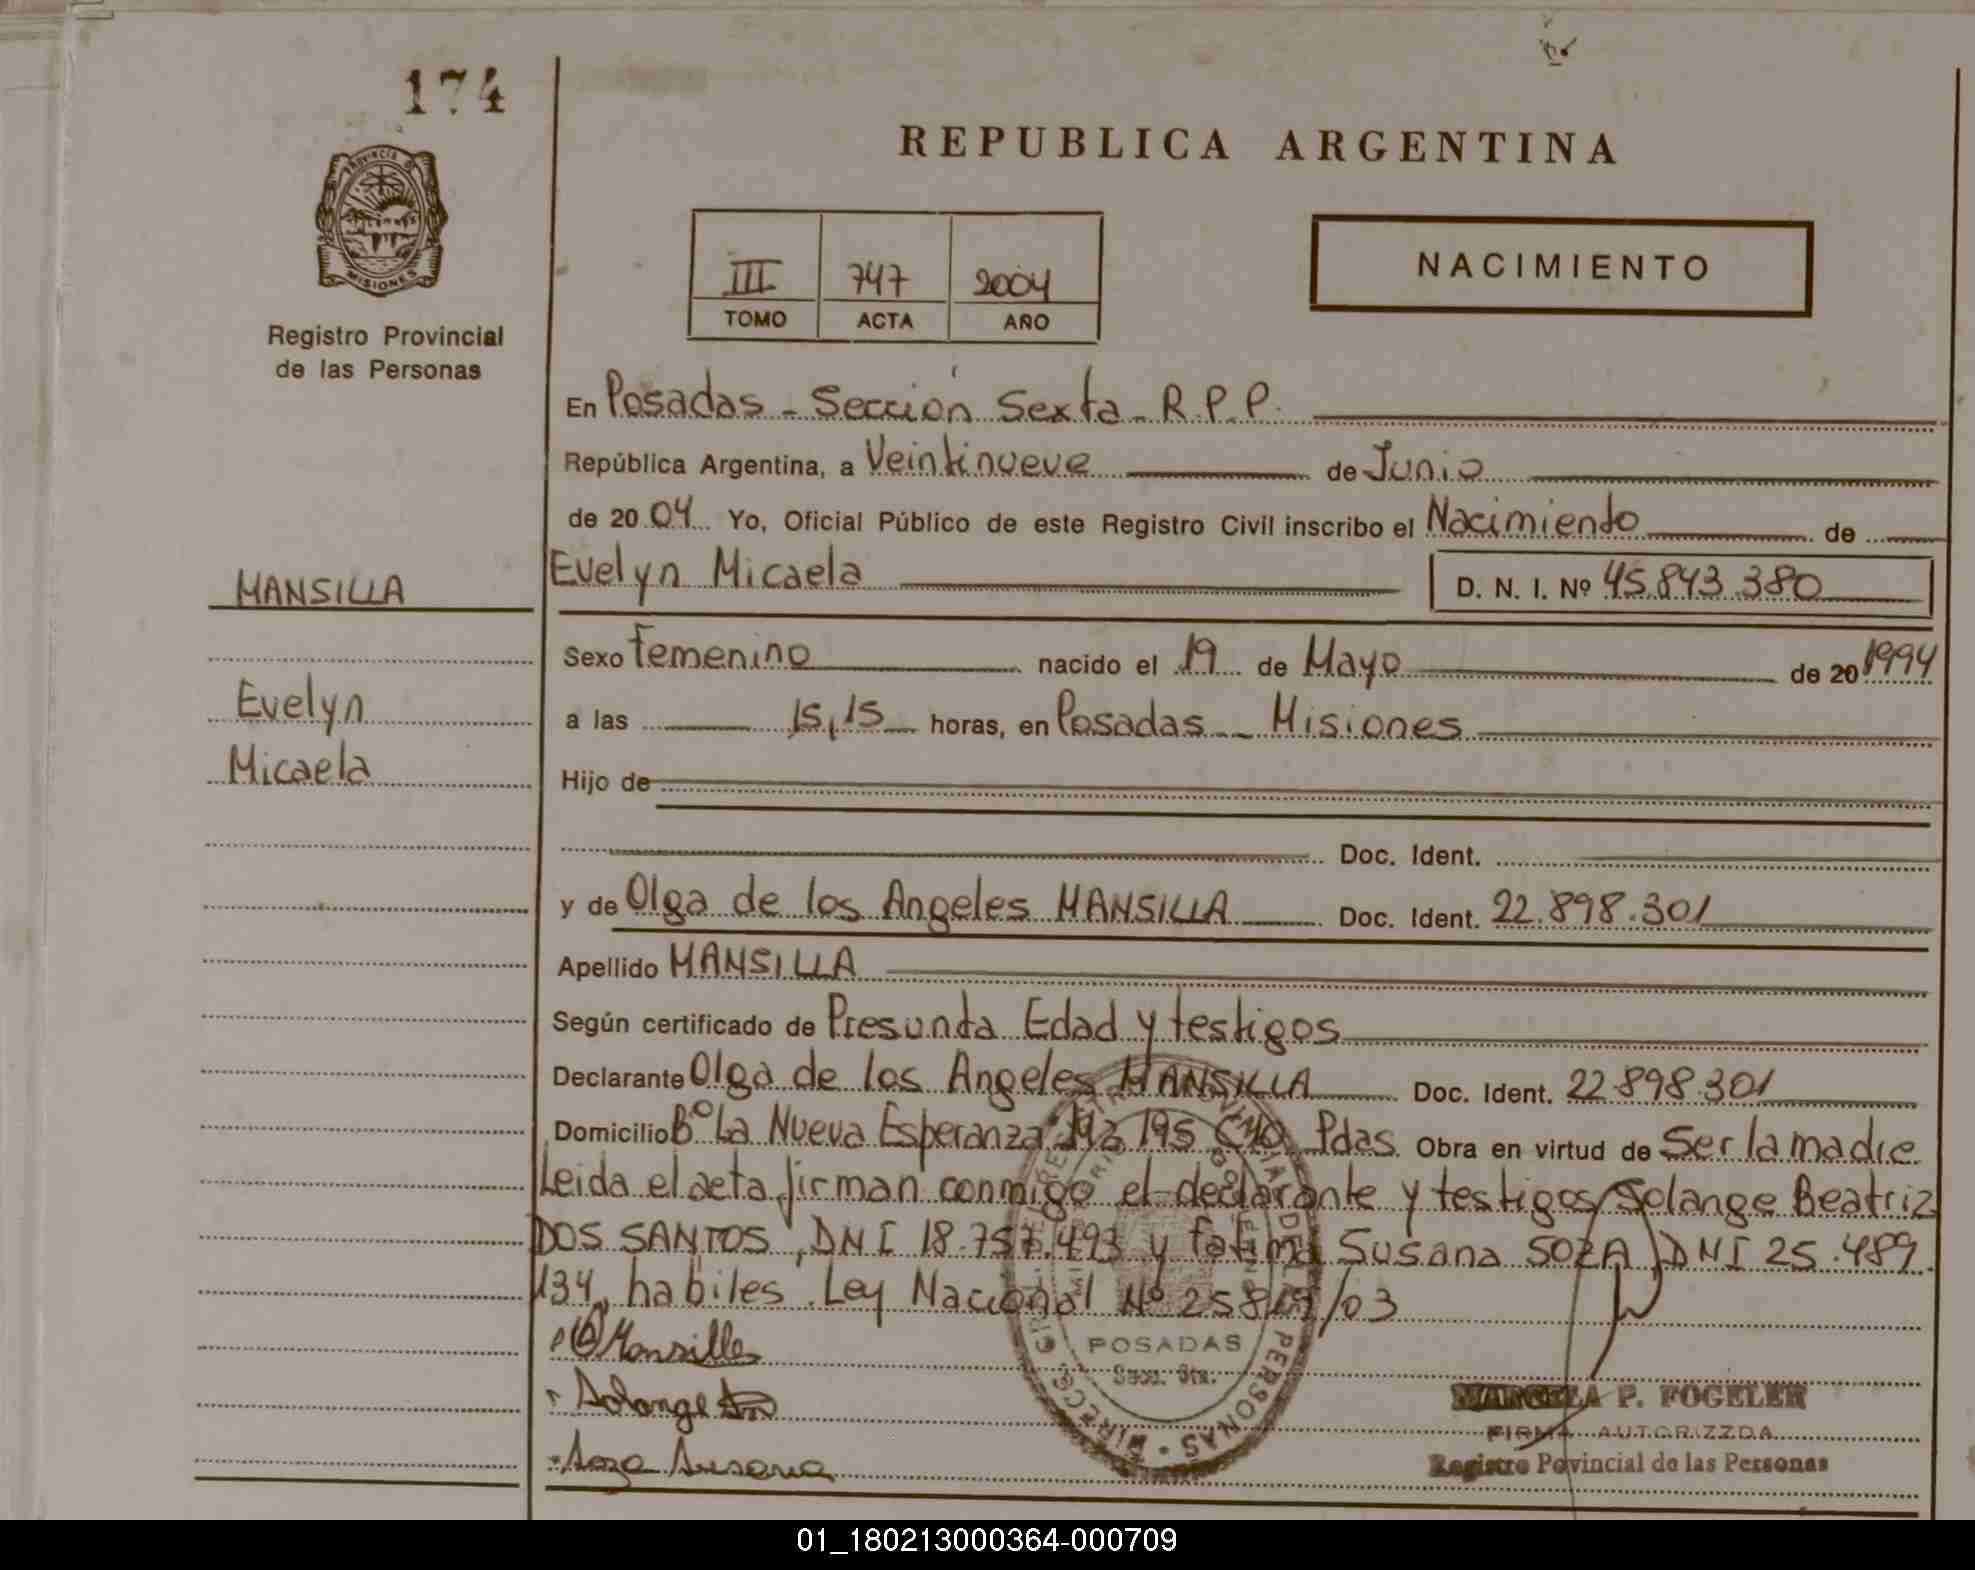 174
REPUBLICA ARGENTINA
PROVINCIA DE
MISIONES
Registro Provincial
de las Personas
III 747 2004
TOMO ACTA AÑO
NACIMIENTO
En Posadas - Sección Sexta - R.P.P.
República Argentina, a Veintinueve de Junio
de 20 04 Yo, Oficial Público de este Registro Civil inscribo el Nacimiento de
MANSILLA
Evelyn Micaela D. N. I. Nº 45.843.380
Sexo Femenino nacido el 19 de Mayo de 20 1994
Evelyn
a las 15,15 horas, en Posadas - Misiones
Micaela
Hijo de
Doc. Ident.
y de Olga de los Angeles MANSILLA Doc. Ident. 22.898.301
Apellido MANSILLA
Según certificado de Presunta Edad y testigos
Declarante Olga de los Angeles MANSILLA Doc. Ident. 22.898.301
Domicilio Bº La Nueva Esperanza Mz 195 C/10 Pdas. Obra en virtud de Ser la madre
Leida el acta firman conmigo el declarante y testigos Solange Beatriz
DOS SANTOS, DNI 18.757.493 y Fatima Susana SOZA, DNI 25.489.
134, habiles. Ley Nacional Nº 25819/03
Mansilla
POSADAS
Secc. 6ta.
Solange
Soza Susana
MARCELA P. FOGELER
FIRMA AUTORIZZDA
Registro Povincial de las Personas
01_180213000364-000709